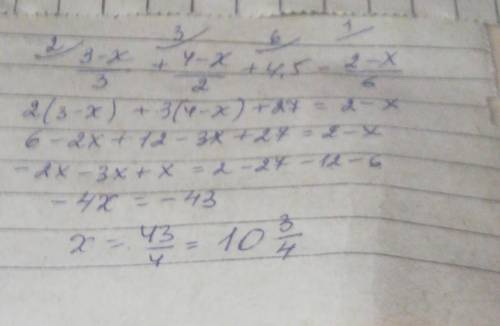 2 3 6 1
(3-x)/3 + (4-x)/2 + 4,5 = (2-x)/6
2(3-x) + 3(4-x) + 27 = 2-x
6-2x+12-3x+27=2-x
-2x-3x+x=2-27-12-6
-4x=-43
x = 43/4 = 10 3/4